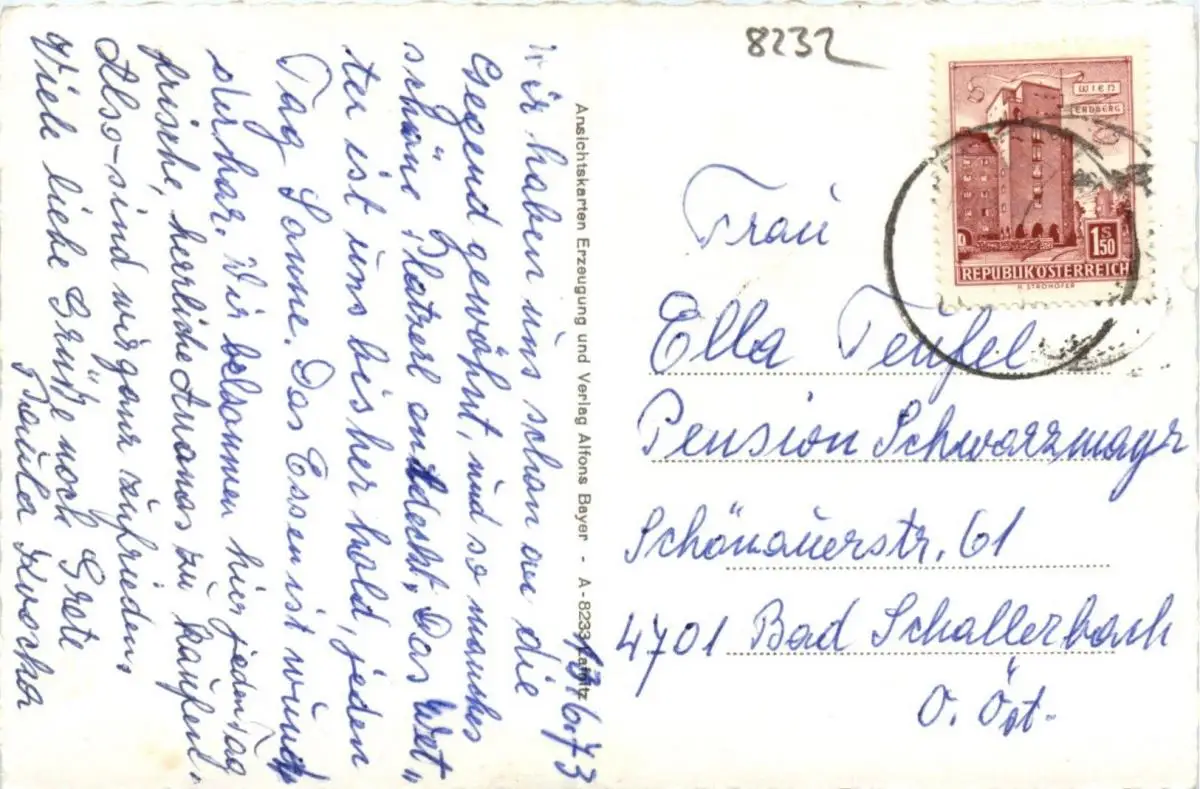 8232
WIEN
ERDBERG
1 S 50
REPUBLIK ÖSTERREICH
R. STROHOFER
13.6.73
Wir haben uns schon an die
Gegend gewöhnt, und so manches
schöne Platzerl entdeckt. Das Wet„
ter ist uns bisher hold, jeden
Tag Sonne. Das Essen ist wund
derbar. Wir bekommen hier jeden Tag
frische, herrliche Ananas zu kaufen.
Also-sind wir ganz zufrieden,
Viele liebe Grüße noch Grete
Paula
Ansichtskarten Erzeugung und Verlag Alfons Bayer - A-8233 Lafnitz
Frau
Ella Teufel
Pension Schwarzmayr
Schönauerstr. 61
4701 Bad Schallerbach
O. Öst.